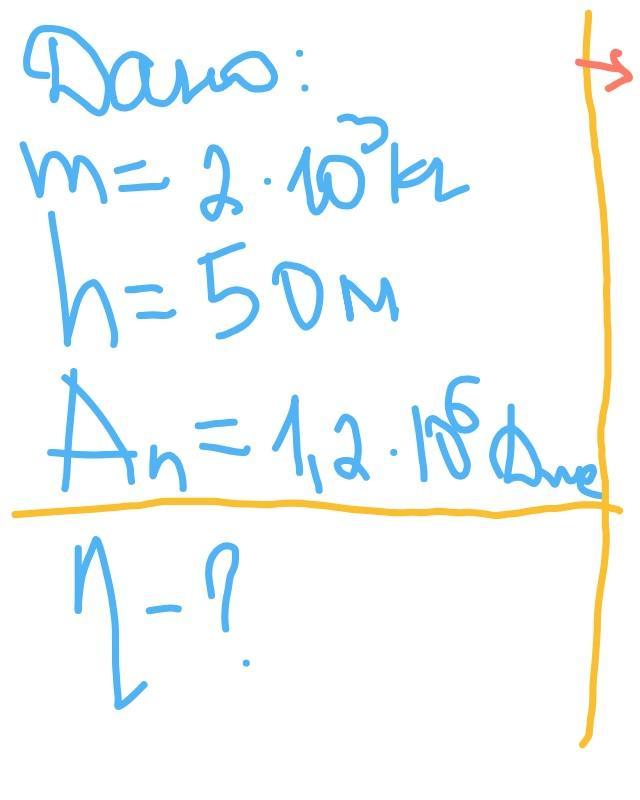 Дано:
m = 2 · 10³ кг
h = 50 м
Aп = 1,2 · 10⁶ Дж
η - ?